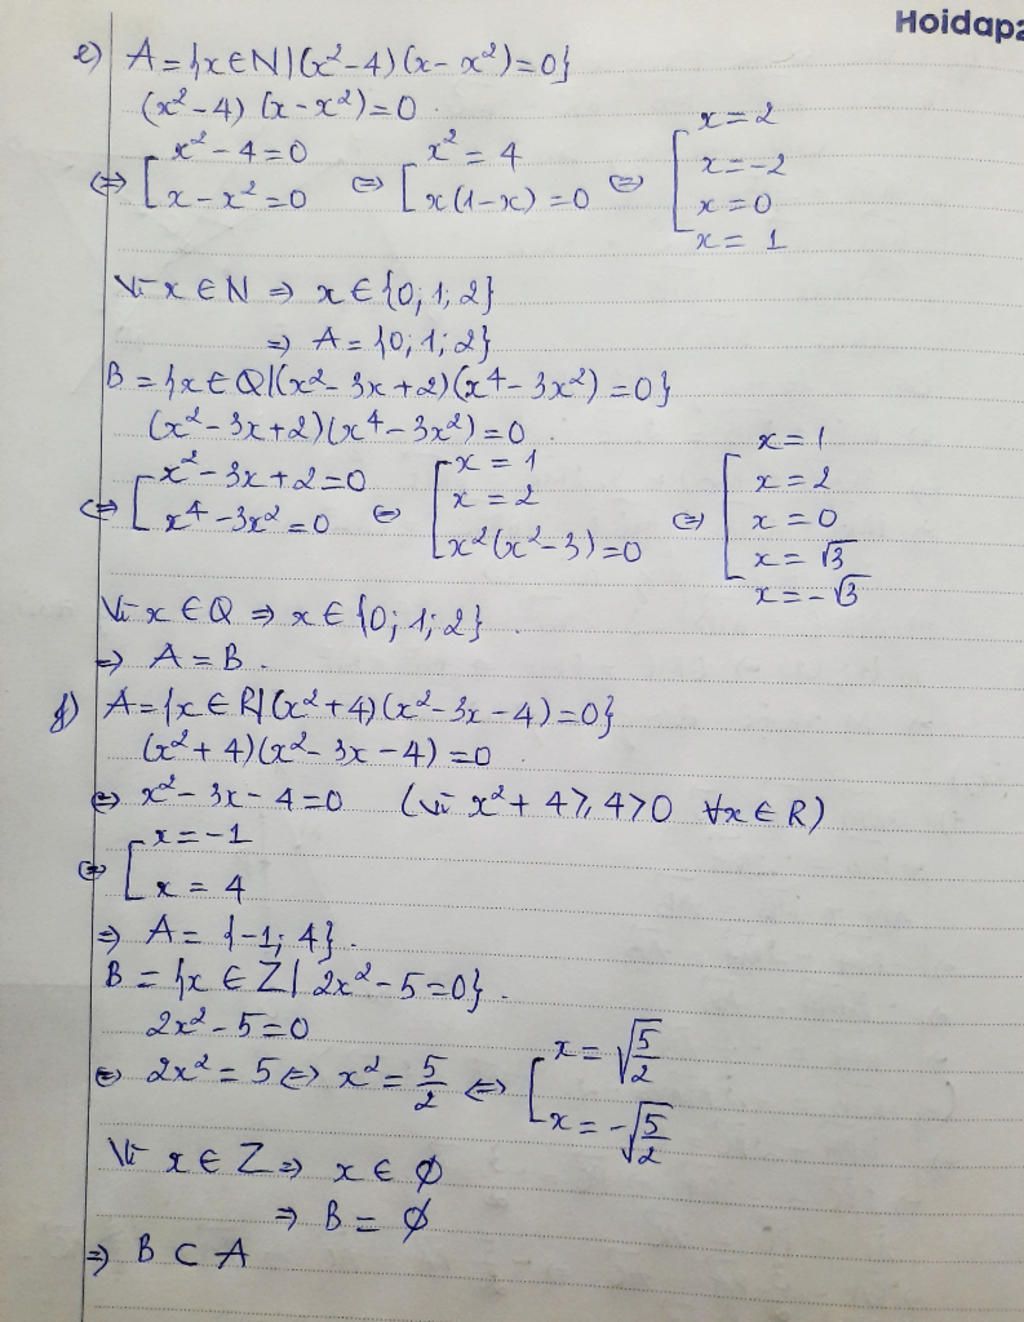 Hoidap2
e) A = {x ∈ N | (x² - 4)(x - x²) = 0}
(x² - 4) (x - x²) = 0
⇔ [ x² - 4 = 0 ; x - x² = 0 ⇔ [ x² = 4 ; x(1 - x) = 0 ⇔ [ x = 2 ; x = -2 ; x = 0 ; x = 1
Vì x ∈ N ⇒ x ∈ {0; 1; 2}
⇒ A = {0; 1; 2}
B = {x ∈ Q | (x² - 3x + 2)(x⁴ - 3x²) = 0}
(x² - 3x + 2)(x⁴ - 3x²) = 0
⇔ [ x² - 3x + 2 = 0 ; x⁴ - 3x² = 0 ⇔ [ x = 1 ; x = 2 ; x²(x² - 3) = 0 ⇔ [ x = 1 ; x = 2 ; x = 0 ; x = √3 ; x = -√3
Vì x ∈ Q ⇒ x ∈ {0; 1; 2}
⇒ A = B.
f) A = {x ∈ R | (x² + 4)(x² - 3x - 4) = 0}
(x² + 4)(x² - 3x - 4) = 0
⇔ x² - 3x - 4 = 0 (vì x² + 4 ≥ 4 > 0 ∀x ∈ R)
⇔ [ x = -1 ; x = 4
⇒ A = {-1; 4}.
B = {x ∈ Z | 2x² - 5 = 0}.
2x² - 5 = 0
⇔ 2x² = 5 ⇔ x² = 5/2 ⇔ [ x = √(5/2) ; x = -√(5/2)
Vì x ∈ Z ⇒ x ∈ ∅
⇒ B = ∅
⇒ B ⊂ A